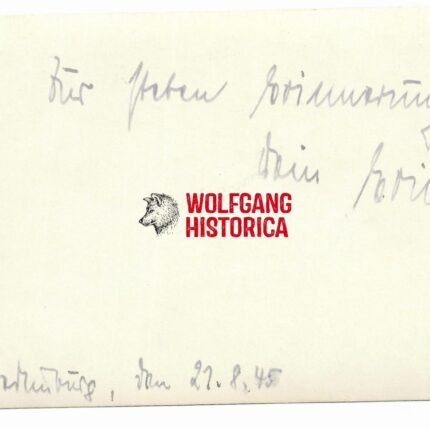 Zur steten Erinnerun
Dein
WOLFGANG
HISTORICA
den 21.8.45